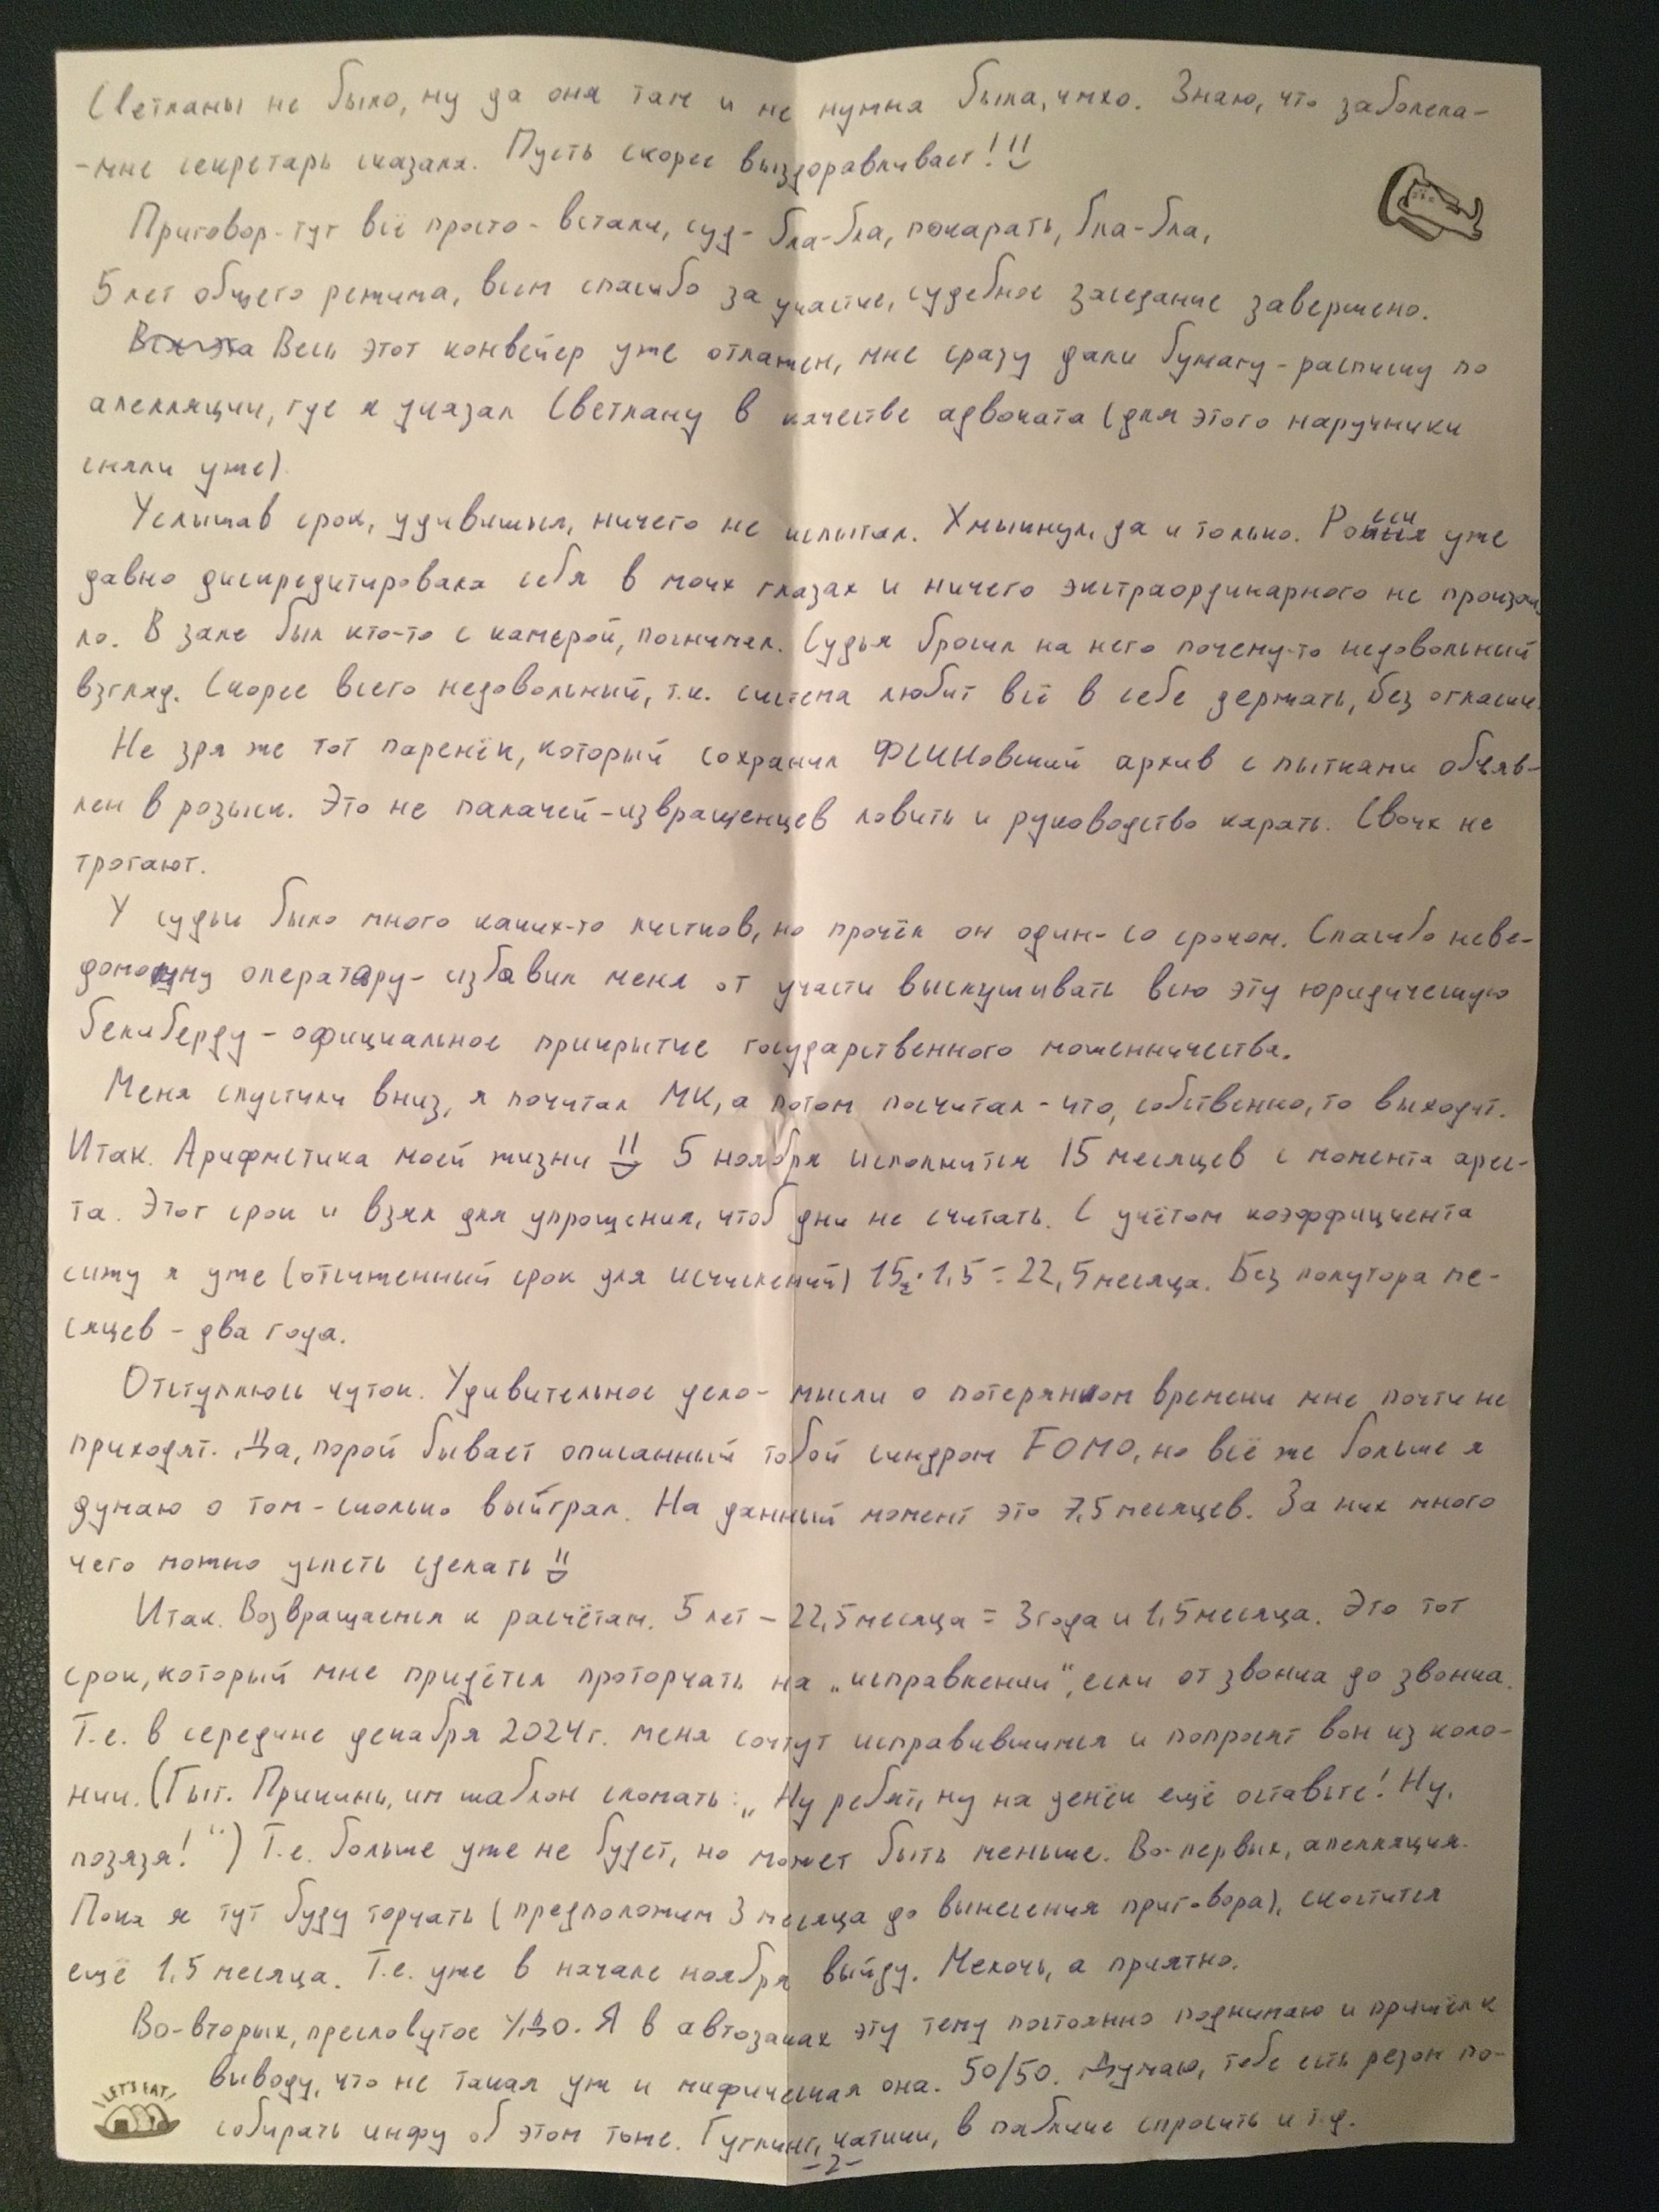 Светланы не было, ну да она там и не нужна была, имхо. Знаю, что заболела-
-мне секретарь сказала. Пусть скорее выздоравливает!
Приговор-тут всё просто - встали, суд- бла-бла, покарать, бла-бла,
5 лет общего режима, всем спасибо за участие, судебное заседание завершено.
Весь этот конвейер уже отлажен, мне сразу дали бумагу-расписку по
апелляции, где я указал Светлану в качестве адвоката (для этого наручники
сняли уже).
Услышав срок, удивишься, ничего не испытал. Хмыкнул, да и только. Россия уже
давно дискредитировала себя в моих глазах и ничего экстраординарного не произош
ло. В зале был кто-то с камерой, поснимал. Судья бросил на него почему-то недовольный
взгляд. Скорее всего недовольный, т.к. система любит всё в себе держать, без огласки.
Не зря же тот паренёк, который сохранил ФСИНовский архив с пытками объяв-
лен в розыск. Это не палачей-извращенцев ловить и руководство карать. Своих не
трогают.
У судьи было много каких-то листков, но прочёл он один- со сроком. Спасибо неве-
домому оператору- избавил меня от участи выслушивать всю эту юридическую
белиберду - официальное прикрытие государственного мошенничества.
Меня спустили вниз, я почитал МК, а потом посчитал - что, собственно, то выходит.
Итак. Арифметика моей жизни 5 ноября исполнится 15 месяцев с момента арес-
та. Этот срок и взял для упрощения, чтоб дни не считать. С учётом коэффициента
сижу я уже (отсиженный срок для исчислений) 15·1,5=22,5 месяца. Без полутора ме-
сяцев - два года.
Отступлюсь чуток. Удивительное дело- мысли о потерянном времени мне почти не
приходят. Да, порой бывает описанный тобой синдром FOMO, но всё же больше я
думаю о том - сколько выйграл. На данный момент это 7,5 месяцев. За них много
чего можно успеть сделать
Итак. Возвращаемся к расчётам. 5 лет - 22,5 месяца = 3 года и 1,5 месяца. Это тот
срок, который мне придётся проторчать на „исправлении“, если от звонка до звонка.
Т.е. в середине декабря 2024г. меня сочтут исправившимся и попросят вон из коло-
нии. (Гыг. Прикинь, им шаблон сломать: „Ну ребят, ну на денёк ещё оставьте! Ну,
позязя!“) Т.е. больше уже не будет, но может быть меньше. Во-первых, апелляция.
Пока я тут буду торчать (предположим 3 месяца до вынесения приговора), скостится
ещё 1,5 месяца. Т.е. уже в начале ноября выйду. Мелочь, а приятно.
Во-вторых, пресловутое УДО. Я в автозаках эту тему постоянно поднимаю и пришёл к
выводу, что не такая уж и мифическая она. 50/50. Думаю, тебе есть резон по-
LET'S EAT!
собирать инфу об этом тоже. Гуглинг, чатики, в паблике спросить и т.д.
-2-